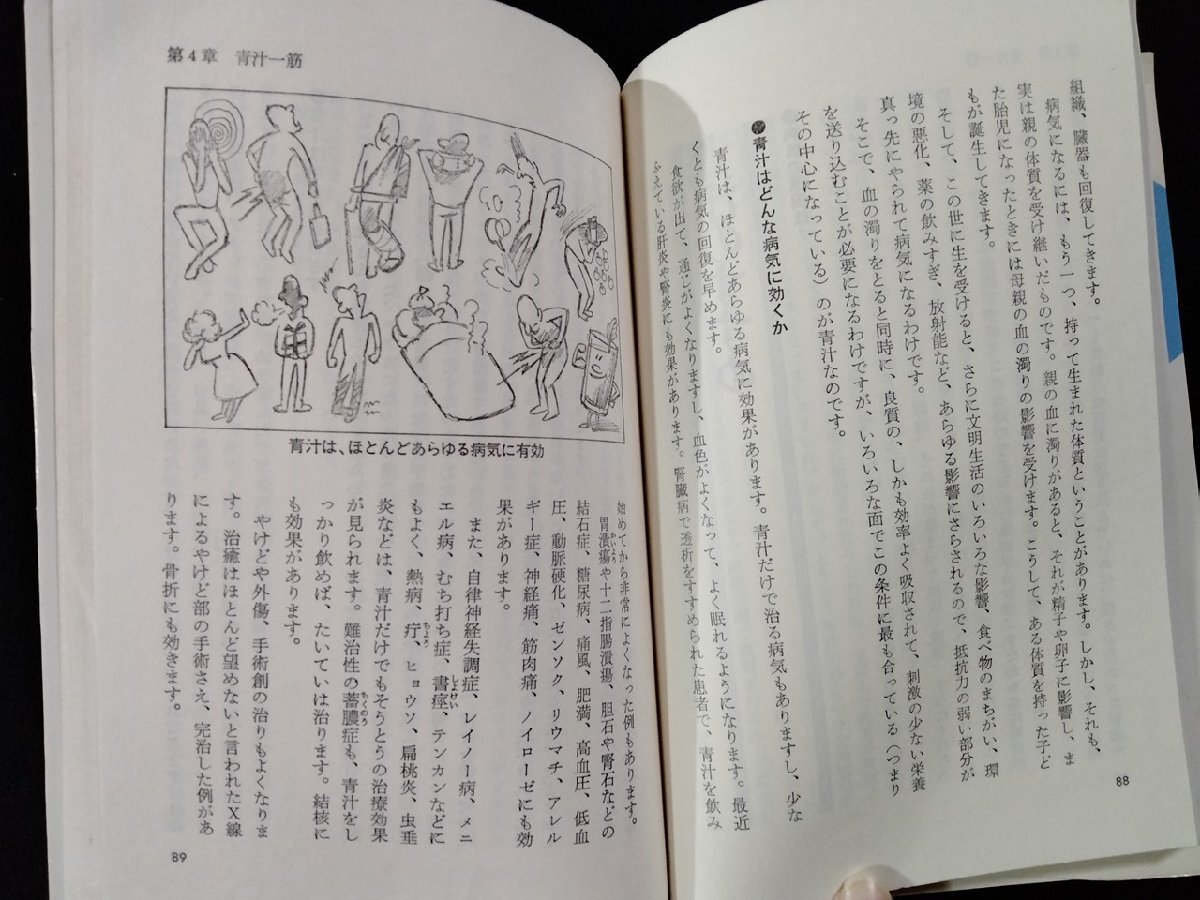 組織、臓器も回復してきます。
病気になるには、もう一つ、持って生まれた体質ということがあります。しかし、それも、
実は親の体質を受け継いだものです。親の血に濁りがあると、それが精子や卵子に影響し、ま
た胎児になったときには母親の血の濁りの影響を受けます。こうして、ある体質を持った子ど
もが誕生してきます。
そして、この世に生を受けると、さらに文明生活のいろいろな影響、食べ物のまちがい、環
境の悪化、薬の飲みすぎ、放射能など、あらゆる影響にさらされるので、抵抗力の弱い部分が
真っ先にやられて病気になるわけです。
そこで、血の濁りをとると同時に、良質の、しかも効率よく吸収されて、刺激の少ない栄養
を送り込むことが必要になるわけですが、いろいろな面でこの条件に最も合っている(つまり
その中心になっている)のが青汁なのです。
青汁はどんな病気に効くか
青汁は、ほとんどあらゆる病気に効果があります。青汁だけで治る病気もありますし、少な
くとも病気の回復を早めます。
食欲が出て、通じがよくなりますし、血色がよくなって、よく眠れるようになります。最近
ふえている肝炎や腎炎にも効果があります。腎臓病で透析をすすめられた患者で、青汁を飲み
88
第4章 青汁一筋
青汁は、ほとんどあらゆる病気に有効
始めてから非常によくなった例もあります。
胃潰瘍や十二指腸潰瘍、胆石や腎石などの
結石症、糖尿病、痛風、肥満、高血圧、低血
圧、動脈硬化、ゼンソク、リウマチ、アレル
ギー症、神経痛、筋肉痛、ノイローゼにも効
果があります。
また、自律神経失調症、レイノー病、メニ
エル病、むち打ち症、書痙、テンカンなどに
もよく、熱病、疔、ヒョウソ、扁桃炎、虫垂
炎などは、青汁だけでもそうとうの治療効果
が見られます。難治性の蓄膿症も、青汁をし
っかり飲めば、たいていは治ります。結核に
も効果があります。
やけどや外傷、手術創の治りもよくなりま
す。治癒はほとんど望めないと言われたX線
によるやけど部の手術さえ、完治した例があ
ります。骨折にも効きます。
89